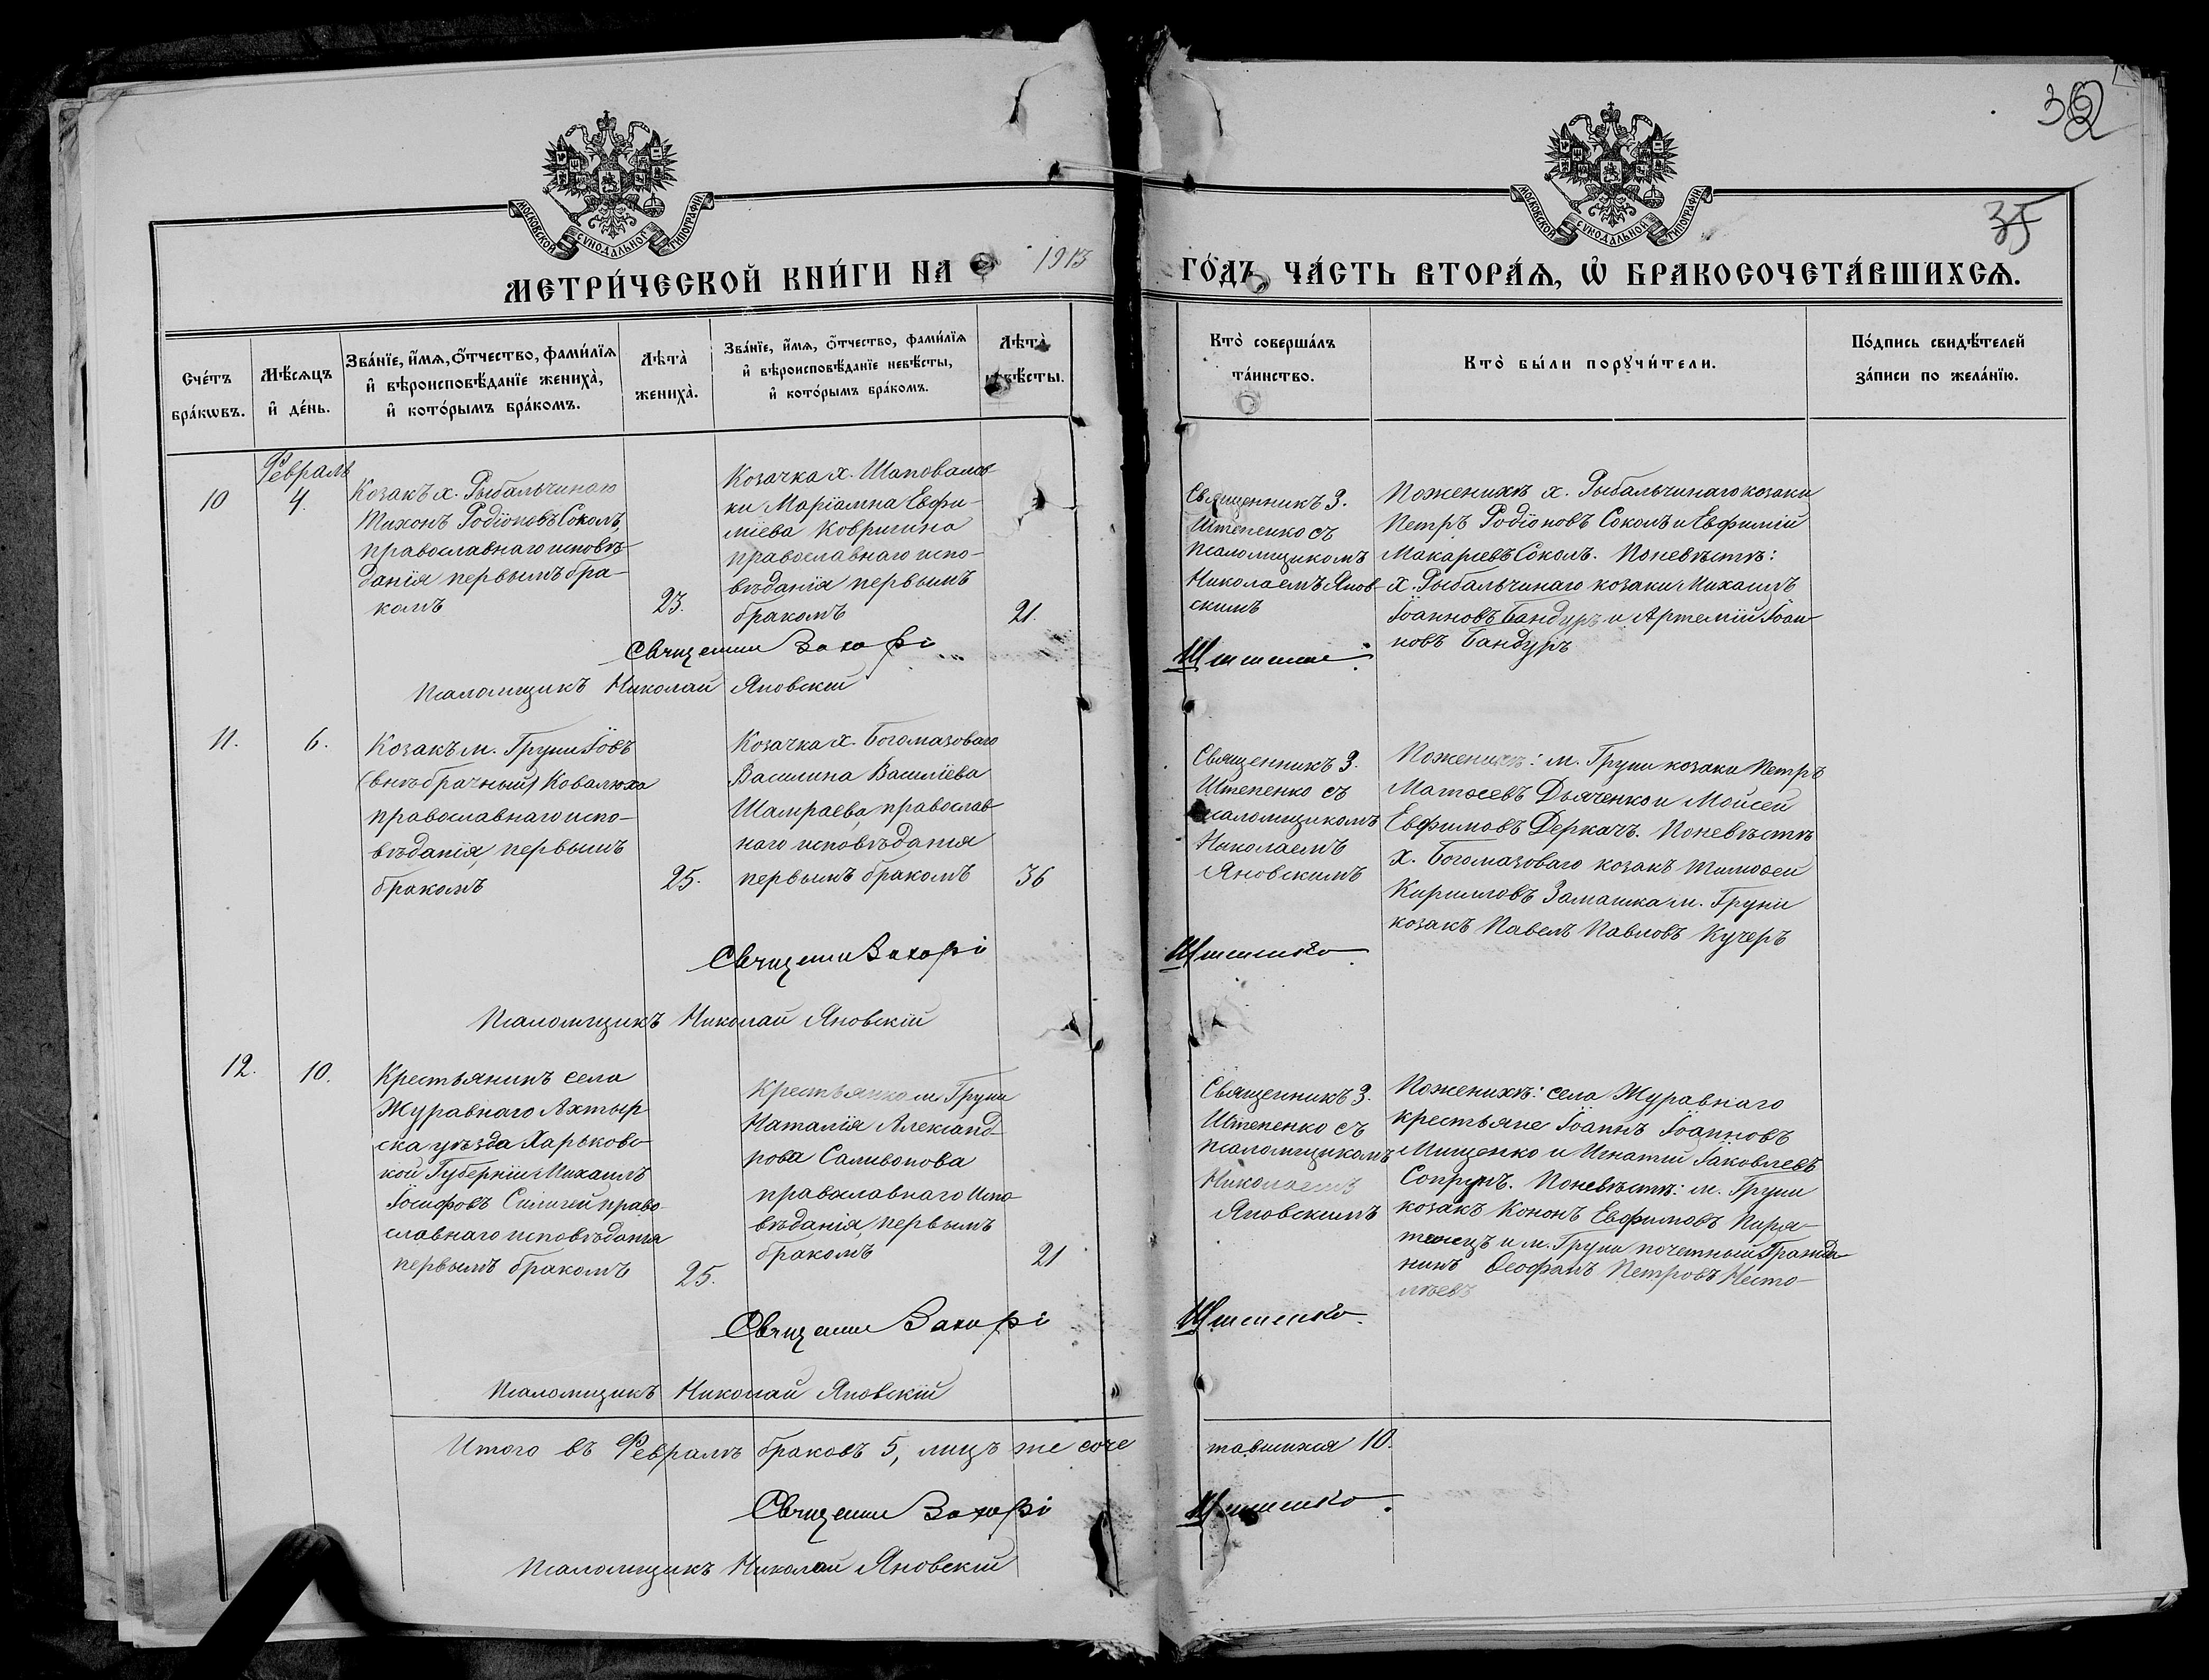 32
35
МОСКОВСКОЙ СУНОДАЛЬНОЙ ТИПОГРАФІИ
МОСКОВСКОЙ СУНОДАЛЬНОЙ ТИПОГРАФІИ
МЕТРИ́ЧЕСКОЙ КНИ́ГИ НА 1913
ГО́ДЪ ЧА́СТЬ ВТОРА́Ѧ, Ѡ҆ БРАКОСОЧЕТА́ВШИХСѦ.
Сче́тъ
бра́кѡвъ.
Мѣ́сѧцъ
и҆ де́нь.
Зва́нїе, и҆́мѧ, ѻ҆́тчество, фами́лїѧ
и҆ вѣроисповѣ́данїе жениха̀,
и҆ кото́рымъ бра́комъ.
Лѣта̀
жениха̀.
Зва́нїе, и҆́мѧ, ѻ҆́тчество, фами́лїѧ
и҆ вѣроисповѣ́данїе невѣ́сты,
и҆ кото́рымъ бра́комъ.
Лѣта̀
невѣ́сты.
Кто̀ соверша́лъ
та́инство.
Кто̀ бы́ли порꙋчи́тели.
По́дпись свидѣ́телей
за́писи по жела́нїю.
Февраль
10
4.
Козакъ х. Рыбальчинаго
Тихонъ Родіоновъ Соколъ,
православнаго исповѣ-
данія первымъ бра-
комъ
23.
Козачка х. Шаповалов-
ки Маріамна Евфи-
міева Ковригина
православнаго испо-
вѣданія первымъ
бракомъ
21.
Священникъ З.
Штепенко съ
псаломщикомъ
Николаемъ Янов-
скимъ
По женихѣ х. Рыбальчинаго козаки
Петръ Родіоновъ Соколъ и Евфимій
Макаріевъ Соколъ. По невѣстѣ:
х. Рыбальчинаго козаки Михаилъ
Іоанновъ Бандуръ и Артемій Іоан-
новъ Бандуръ
Священник Захарі
Штепенко
Псаломщикъ Николай Яновскій
11.
6.
Козакъ м. Груни Іовъ
(внѣбрачный) Ковалюха
православнаго испо-
вѣданія, первымъ
бракомъ
25.
Козачка х. Богомазоваго
Василина Василіева
Шамраева, православ-
наго исповѣданія
первымъ бракомъ
36
Священникъ З.
Штепенко съ
псаломщикомъ
Николаемъ
Яновскимъ
По женихѣ: м. Груни козаки Петръ
Матѳеевъ Дьяченко и Моисей
Евфимовъ Деркачъ. По невѣстѣ
х. Богомазоваго козакъ Тимоѳей
Кирилловъ Замашка м. Груни
козакъ Павелъ Павловъ Кучеръ
Священник Захарі
Штепенко
Псаломщикъ Николай Яновскій
12.
10.
Крестьянинъ села
Журавнаго Ахтыр
ска уѣзда Харьковс-
кой Губерніи Михаилъ
Іосифовъ право-
славнаго исповѣданія
первымъ бракомъ
25.
Крестьянка м. Груни
Наталія Александ-
рова Саливонова
православнаго Испо-
вѣданія, первымъ
бракомъ
21
Священникъ З.
Штепенко съ
псаломщикомъ
Николаемъ
Яновскимъ
По женихѣ: села Журавнаго
крестьяне Іоаннъ Іоанновъ
Мищенко и Игнатій Іаковлевъ
Сопрунъ. По невѣстѣ: м. Груни
козакъ Кононъ Евфимовъ Пиря-
тинецъ и м. Груни почетный Гражда-
нинъ Ѳеофанъ Петровъ
Священник Захарі
Штепенко
Псаломщикъ Николай Яновскій
Итого въ Февралѣ браковъ 5, лицъ же соче
тавшихся 10.
Священник Захарі
Штепенко
Псаломщикъ Николай Яновскій